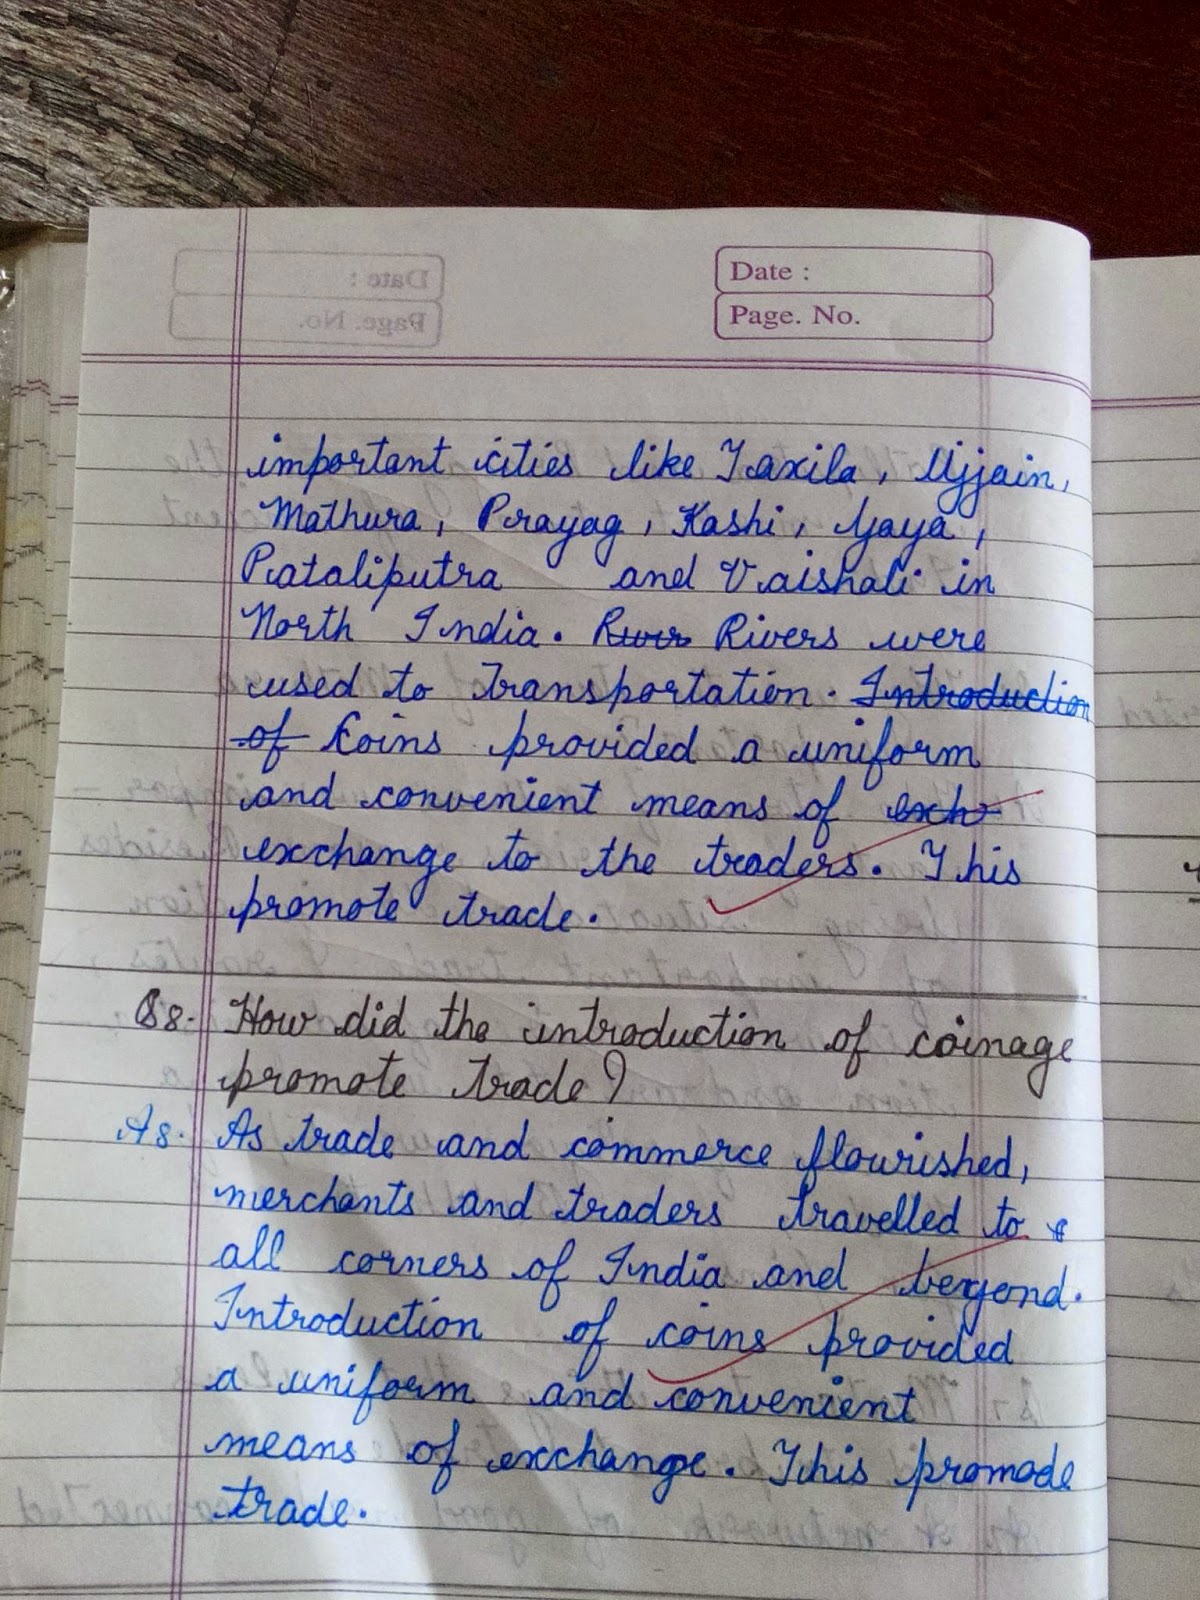 Date :
Page. No.
important cities like Taxila, Ujjain,
Mathura, Prayag, Kashi, Gaya,
Pataliputra and Vaishali in
North India. River Rivers were
used to transportation. Introduction
of Coins provided a uniform
and convenient means of exch
exchange to the traders. This
promote trade.
Q8. How did the introduction of coinage
promote trade?
A8. As trade and commerce flourished,
merchants and traders travelled to
all corners of India and beyond.
Introduction of coins provided
a uniform and convenient
means of exchange. This promode
trade.